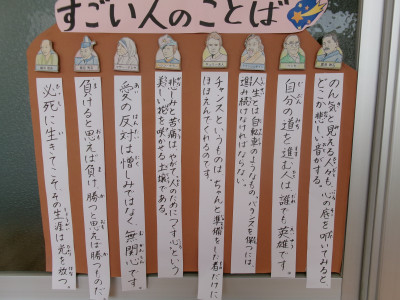 すごい人のことば
のん気と見える人々も、心の底を叩いてみると
どこか悲しい音がする。
自分の道を進む人は、誰でも英雄です。
人生とは自転車のようなもの。バランスを保つには
走り続けなければならない。
チャンスというものは、ちゃんと準備をした者だけに
ほほえんでくれるのです。
悲しみと苦痛は、やがて「人のためにつくす心」という
美しい花を咲かせる土壌である。
愛の反対は憎しみではなく、無関心です。
負けると思えば負け、勝つと思えば勝つものだ。
必死に生きてこそ、その生涯は光を放つ。